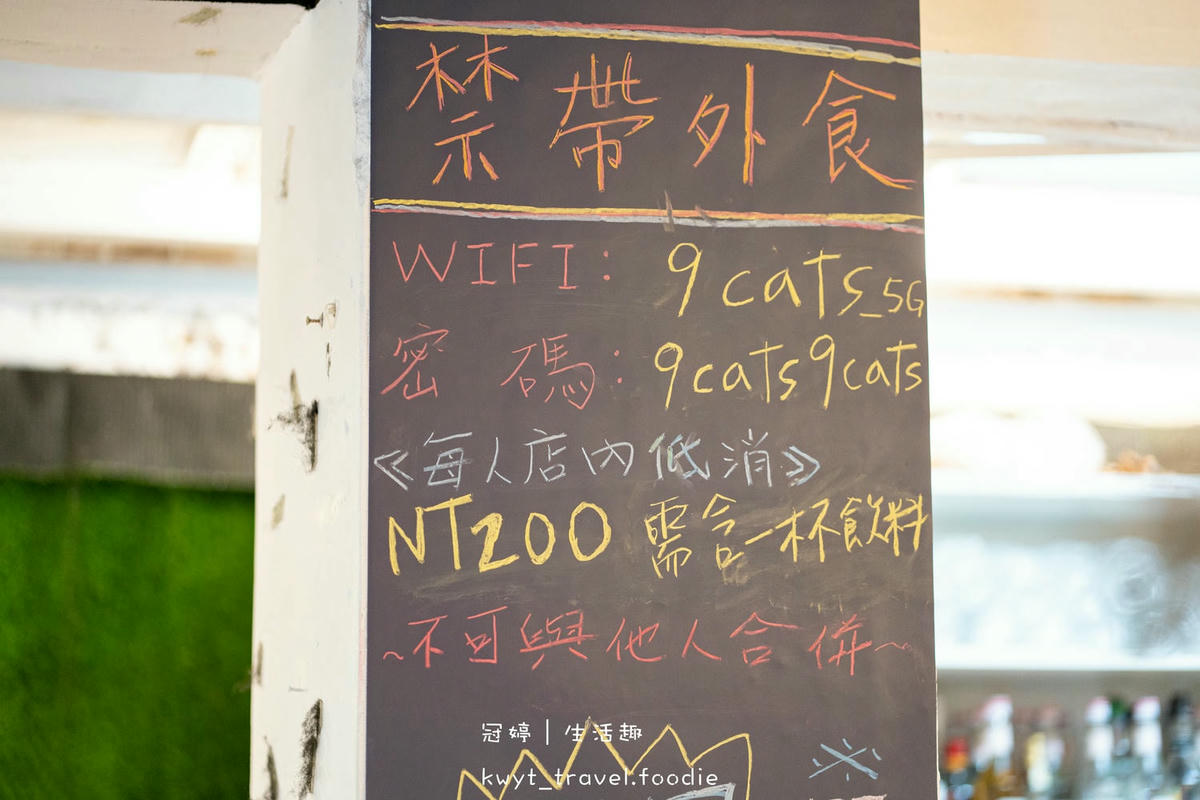 禁帶外食
WIFI: 9cats_5G
密碼: 9cats9cats
《每人店內低消》
NT200 需含一杯飲料
~不可與他人合併~
冠婷 | 生活趣
kwyt_travel.foodie
※